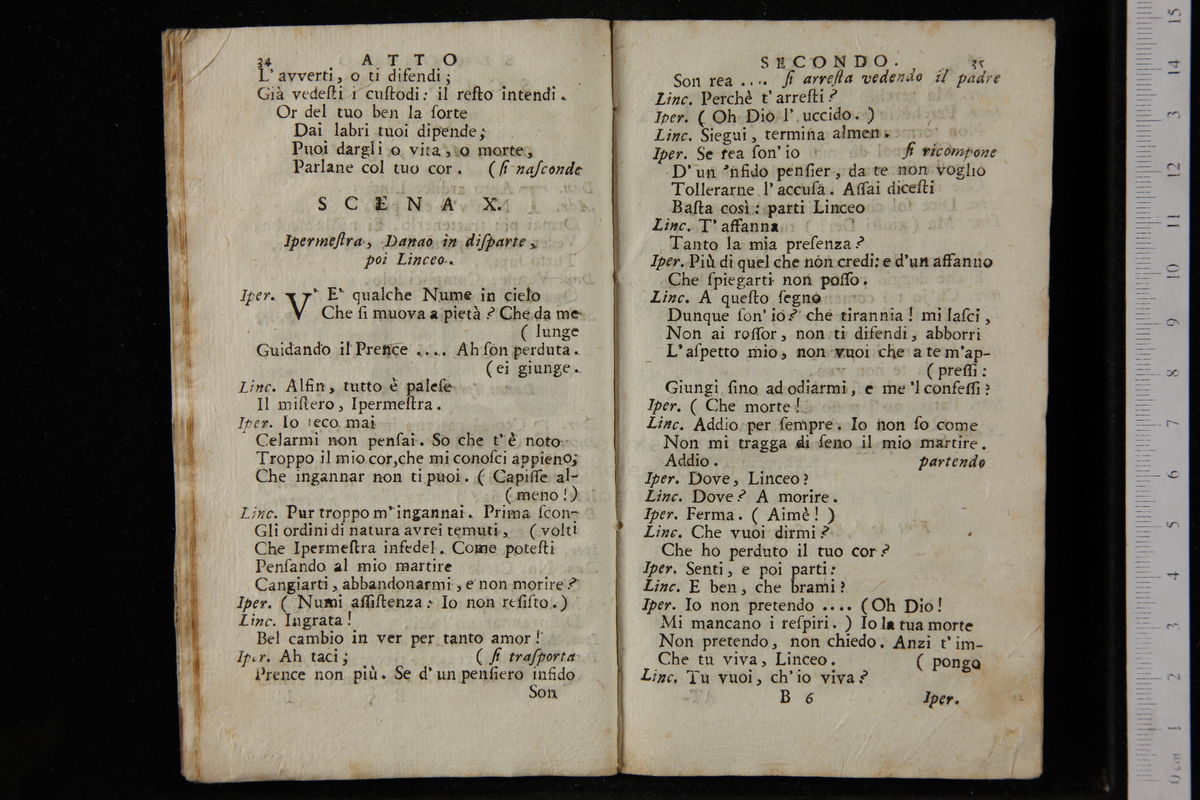 34 ATTO
L' avverti, o ti difendi;
Già vedeſti i cuſtodi: il reſto intendi.
Or del tuo ben la ſorte
Dai labri tuoi dipende;
Puoi dargli o vita, o morte,
Parlane col tuo cor. (ſi naſconde
SCENA X.
Ipermeſtra, Danao in diſparte,
poi Linceo.
Iper. V' E' qualche Nume in cielo
Che ſi muova a pietà? Che da me
( lunge
Guidando il Prence .... Ah ſon perduta.
( ei giunge.
Linc. Alfin, tutto è paleſe
Il miſtero, Ipermeſtra.
Iper. Io teco mai
Celarmi non penſai. So che t' è noto
Troppo il mio cor,che mi conoſci appieno;
Che ingannar non ti puoi. ( Capiſſe al-
( meno!)
Linc. Pur troppo m' ingannai. Prima ſcon-
Gli ordini di natura avrei temuti, ( volti
Che Ipermeſtra infedel. Come poteſti
Penſando al mio martire
Cangiarti, abbandonarmi, e non morire?
Iper. ( Numi aſſiſtenza: Io non reſiſto.)
Linc. Ingrata!
Bel cambio in ver per tanto amor!
Iper. Ah taci; ( ſi traſporta
Prence non più. Se d' un penſiero infido
Son
SECONDO. 35
Son rea .... ſi arreſta vedendo il padre
Linc. Perchè t' arreſti?
Iper. ( Oh Dio l' uccido. )
Linc. Siegui, termina almen.
Iper. Se rea ſon' io ſi ricompone
D' un 'nfido penſier, da te non voglio
Tollerarne l' accuſa. Aſſai diceſti
Baſta così: parti Linceo
Linc. T' affanna
Tanto la mia preſenza?
Iper. Più di quel che non credi: e d'un affanno
Che ſpiegarti non poſſo.
Linc. A queſto ſegno
Dunque ſon' io? che tirannia! mi laſci,
Non ai roſſor, non ti difendi, abborri
L' aſpetto mio, non vuoi che a te m'ap-
( preſſi:
Giungi ſino ad odiarmi, e me 'l confeſſi?
Iper. ( Che morte!
Linc. Addio per ſempre. Io non ſo come
Non mi tragga di ſeno il mio martire.
Addio. partendo
Iper. Dove, Linceo?
Linc. Dove? A morire.
Iper. Ferma. ( Aimè! )
Linc. Che vuoi dirmi?
Che ho perduto il tuo cor?
Iper. Senti, e poi parti:
Linc. E ben, che brami?
Iper. Io non pretendo .... (Oh Dio!
Mi mancano i reſpiri. ) Io la tua morte
Non pretendo, non chiedo. Anzi t' im-
Che tu viva, Linceo. ( pongo
Linc. Tu vuoi, ch'io viva?
B 6 Iper.
0 cm 1 2 3 4 5 6 7 8 9 10 11 12 13 14 15